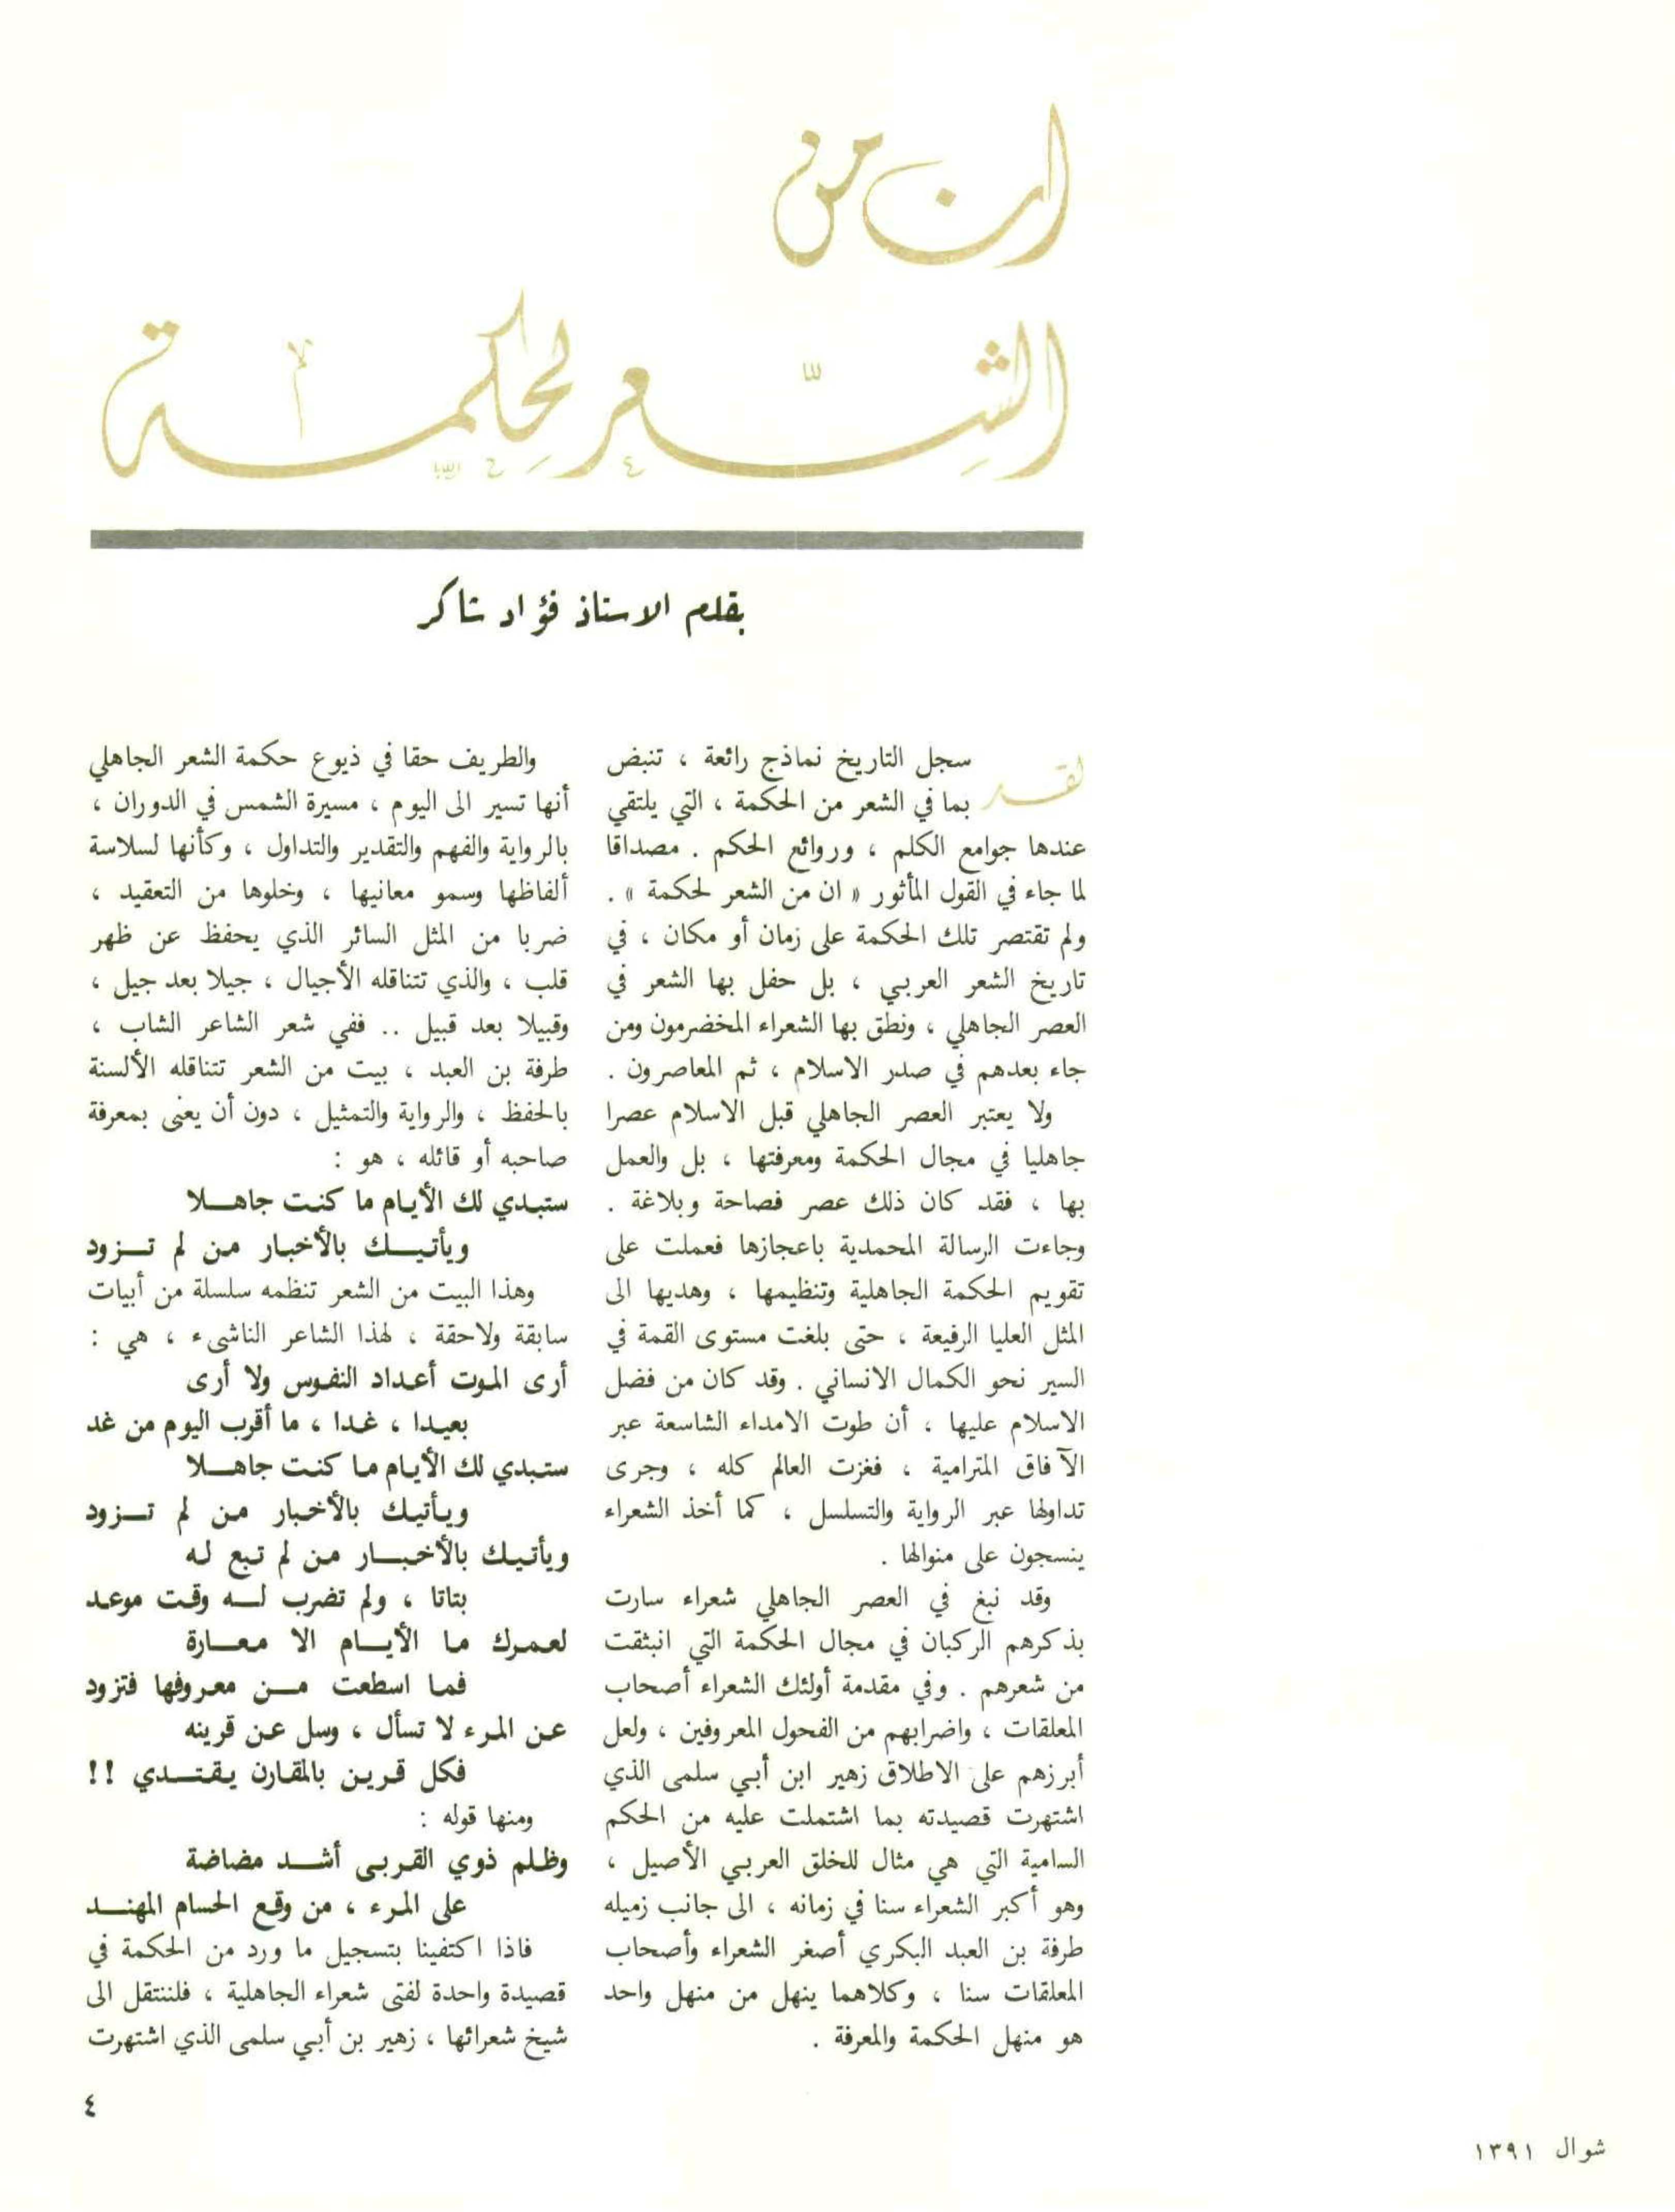 ان من
الشعر لحكمة
بقلم الاستاذ فؤاد شاكر
لقد سجل التاريخ نماذج رائعة ، تنبض
بما في الشعر من الحكمة ، التي يلتقي
عندها جوامع الكلم ، وروائع الحكم . مصداقا
لما جاء في القول المأثور « ان من الشعر لحكمة » .
ولم تقتصر تلك الحكمة على زمان أو مكان ، في
تاريخ الشعر العربي ، بل حفل بها الشعر في
العصر الجاهلي ، ونطق بها الشعراء المخضرمون ومن
جاء بعدهم في صدر الاسلام ، ثم المعاصرون .
ولا يعتبر العصر الجاهلي قبل الاسلام عصرا
جاهليا في مجال الحكمة ومعرفتها ، بل والعمل
بها ، فقد كان ذلك عصر فصاحة وبلاغة .
وجاءت الرسالة المحمدية باعجازها فعملت على
تقويم الحكمة الجاهلية وتنظيمها ، وهديها الى
المثل العليا الرفيعة ، حتى بلغت مستوى القمة في
السير نحو الكمال الانساني . وقد كان من فضل
الاسلام عليها ، أن طوت الامداء الشاسعة عبر
الآفاق المترامية ، فغزت العالم كله ، وجرى
تداولها عبر الرواية والتسلسل ، كما أخذ الشعراء
ينسجون على منوالها .
وقد نبغ في العصر الجاهلي شعراء سارت
بذكرهم الركبان في مجال الحكمة التي انبثقت
من شعرهم . وفي مقدمة أولئك الشعراء أصحاب
المعلقات ، واضرابهم من الفحول المعروفين ، ولعل
أبرزهم على الاطلاق زهير ابن أبي سلمى الذي
اشتهرت قصيدته بما اشتملت عليه من الحكم
السامية التي هي مثال للخلق العربي الأصيل ،
وهو أكبر الشعراء سنا في زمانه ، الى جانب زميله
طرفة بن العبد البكري أصغر الشعراء وأصحاب
المعلقات سنا ، وكلاهما ينهل من منهل واحد
هو منهل الحكمة والمعرفة .
والطريف حقا في ذيوع حكمة الشعر الجاهلي
أنها تسير الى اليوم ، مسيرة الشمس في الدوران ،
بالرواية والفهم والتقدير والتداول ، وكأنها لسلاسة
ألفاظها وسمو معانيها ، وخلوها من التعقيد ،
ضربا من المثل السائر الذي يحفظ عن ظهر
قلب ، والذي تتناقله الأجيال ، جيلا بعد جيل ،
وقبيلا بعد قبيل .. ففي شعر الشاعر الشاب ،
طرفة بن العبد ، بيت من الشعر تتناقله الألسنة
بالحفظ ، والرواية والتمثيل ، دون أن يعنى بمعرفة
صاحبه أو قائله ، هو :
ستبدي لك الأيام ما كنت جاهـلا
ويأتيـك بالأخبار من لم تـزود
وهذا البيت من الشعر تنظمه سلسلة من أبيات
سابقة ولاحقة ، لهذا الشاعر الناشىء ، هي :
أرى الموت أعداد النفوس ولا أرى
بعيدا ، غدا ، ما أقرب اليوم من غد
ستبدي لك الأيام ما كنت جاهـلا
ويأتيك بالأخبار من لم تـزود
ويأتيك بالأخبـار من لم تبع له
بتاتا ، ولم تضرب لـه وقت موعد
لعمرك ما الأيـام الا معـارة
فما اسطعت مـن معروفها فتزود
عن المرء لا تسأل ، وسل عن قرينه
فكل قرين بالمقارن يقتـدي !!
ومنها قوله :
وظلم ذوي القربى أشـد مضاضة
على المرء ، من وقع الحسام المهنـد
فاذا اكتفينا بتسجيل ما ورد من الحكمة في
قصيدة واحدة لفتى شعراء الجاهلية ، فلننتقل الى
شيخ شعرائها ، زهير بن أبي سلمى الذي اشتهرت
٤
شوال ١٣٩١